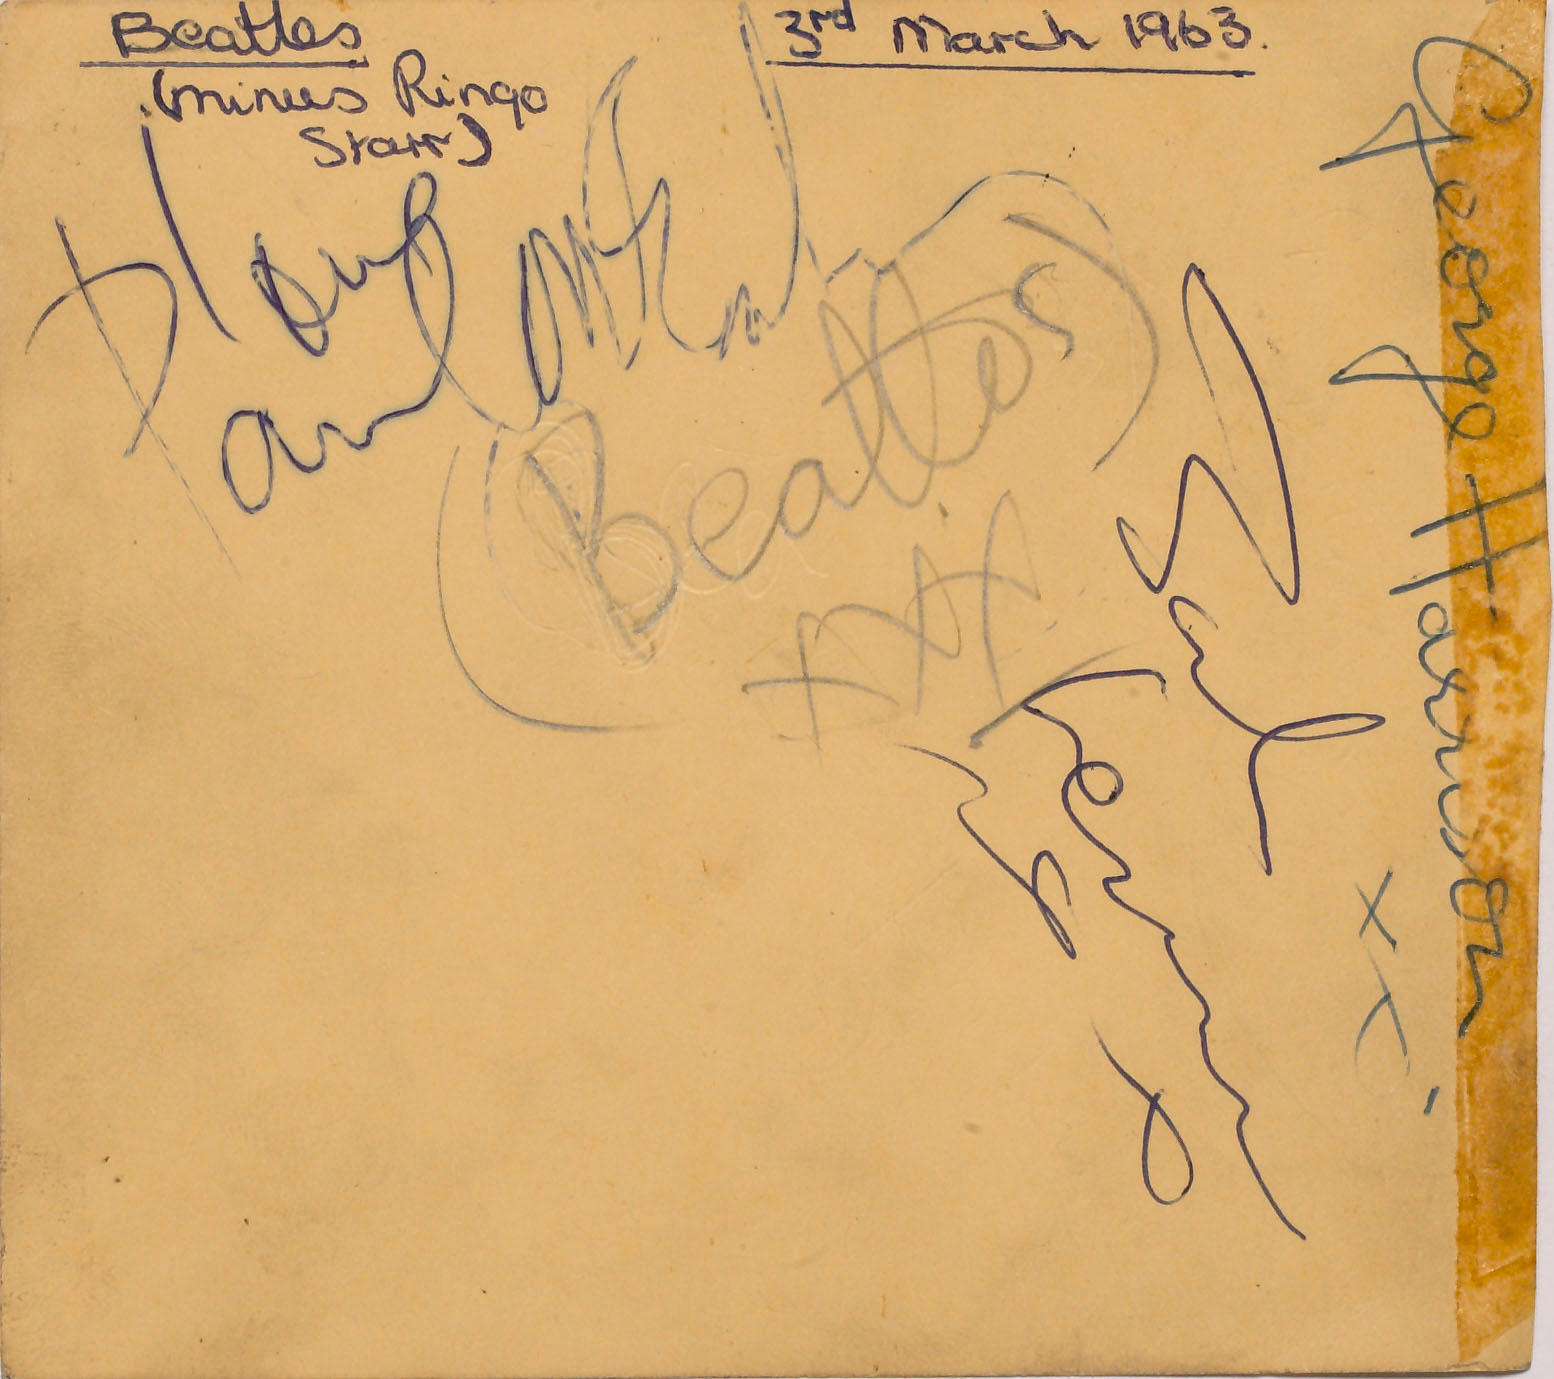 Beatles
3rd March 1963.
(minus Ringo
Starr)
love
Paul McCartney
(Beatles)
XXX
George Harrison
xx